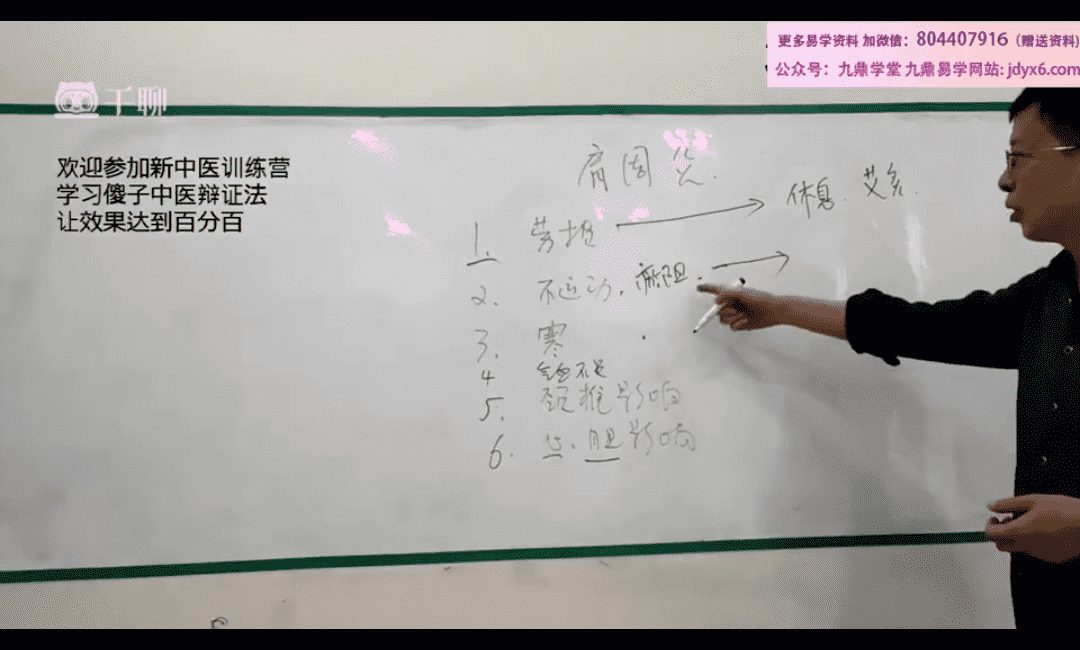 更多易学资料 加微信：804407916（赠送资料）
公众号：九鼎学堂 九鼎易学网站：jdyx6.com
千聊
欢迎参加新中医训练营
学习傻子中医辩证法
让效果达到百分百
肩周炎.
1. 劳损 → 休息. 艾灸.
2. 不运动. 瘀阻. →
3. 寒
4 气血不足
5. 颈椎影响
6. 心. 胆影响